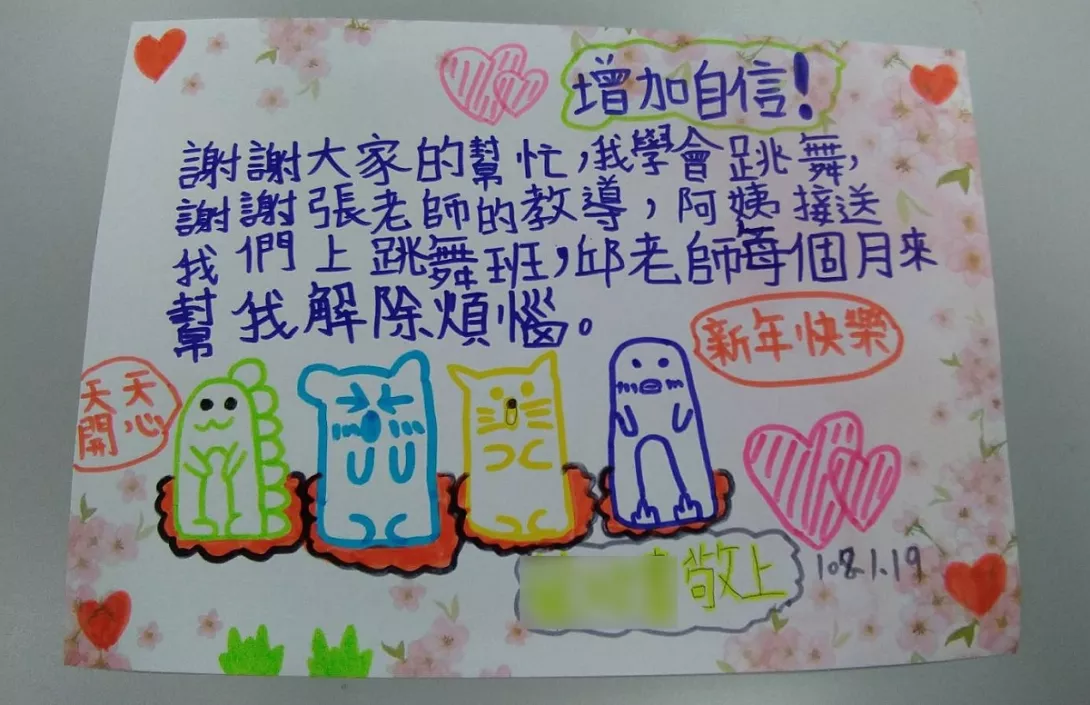 增加自信!
謝謝大家的幫忙,我學會跳舞,
謝謝張老師的教導,阿姨接送
我們上跳舞班,邱老師每個月來
幫我解除煩惱。
新年快樂
天天
開心
敬上
108.1.19